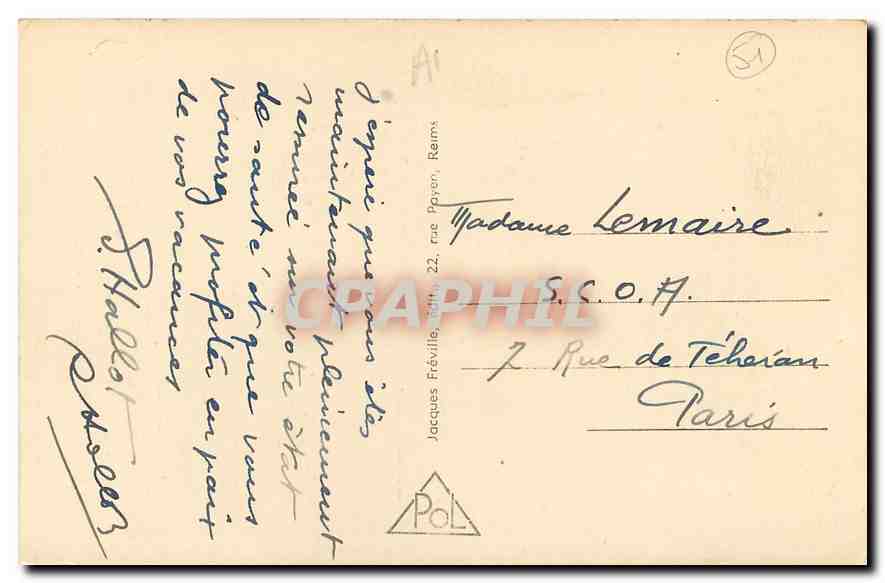 J'espère que vous êtes
maintenant pleinement
rassurée sur votre état
de santé et que vous
pourrez profiter en paix
de vos vacances
P. Hallot
R Hallot
Jacques Fréville, édit., 22, rue Payen, Reims
POL
AI
51
Madame Lemaire
S.C.O.A.
7 Rue de Téhéran
Paris
CPAPHIL